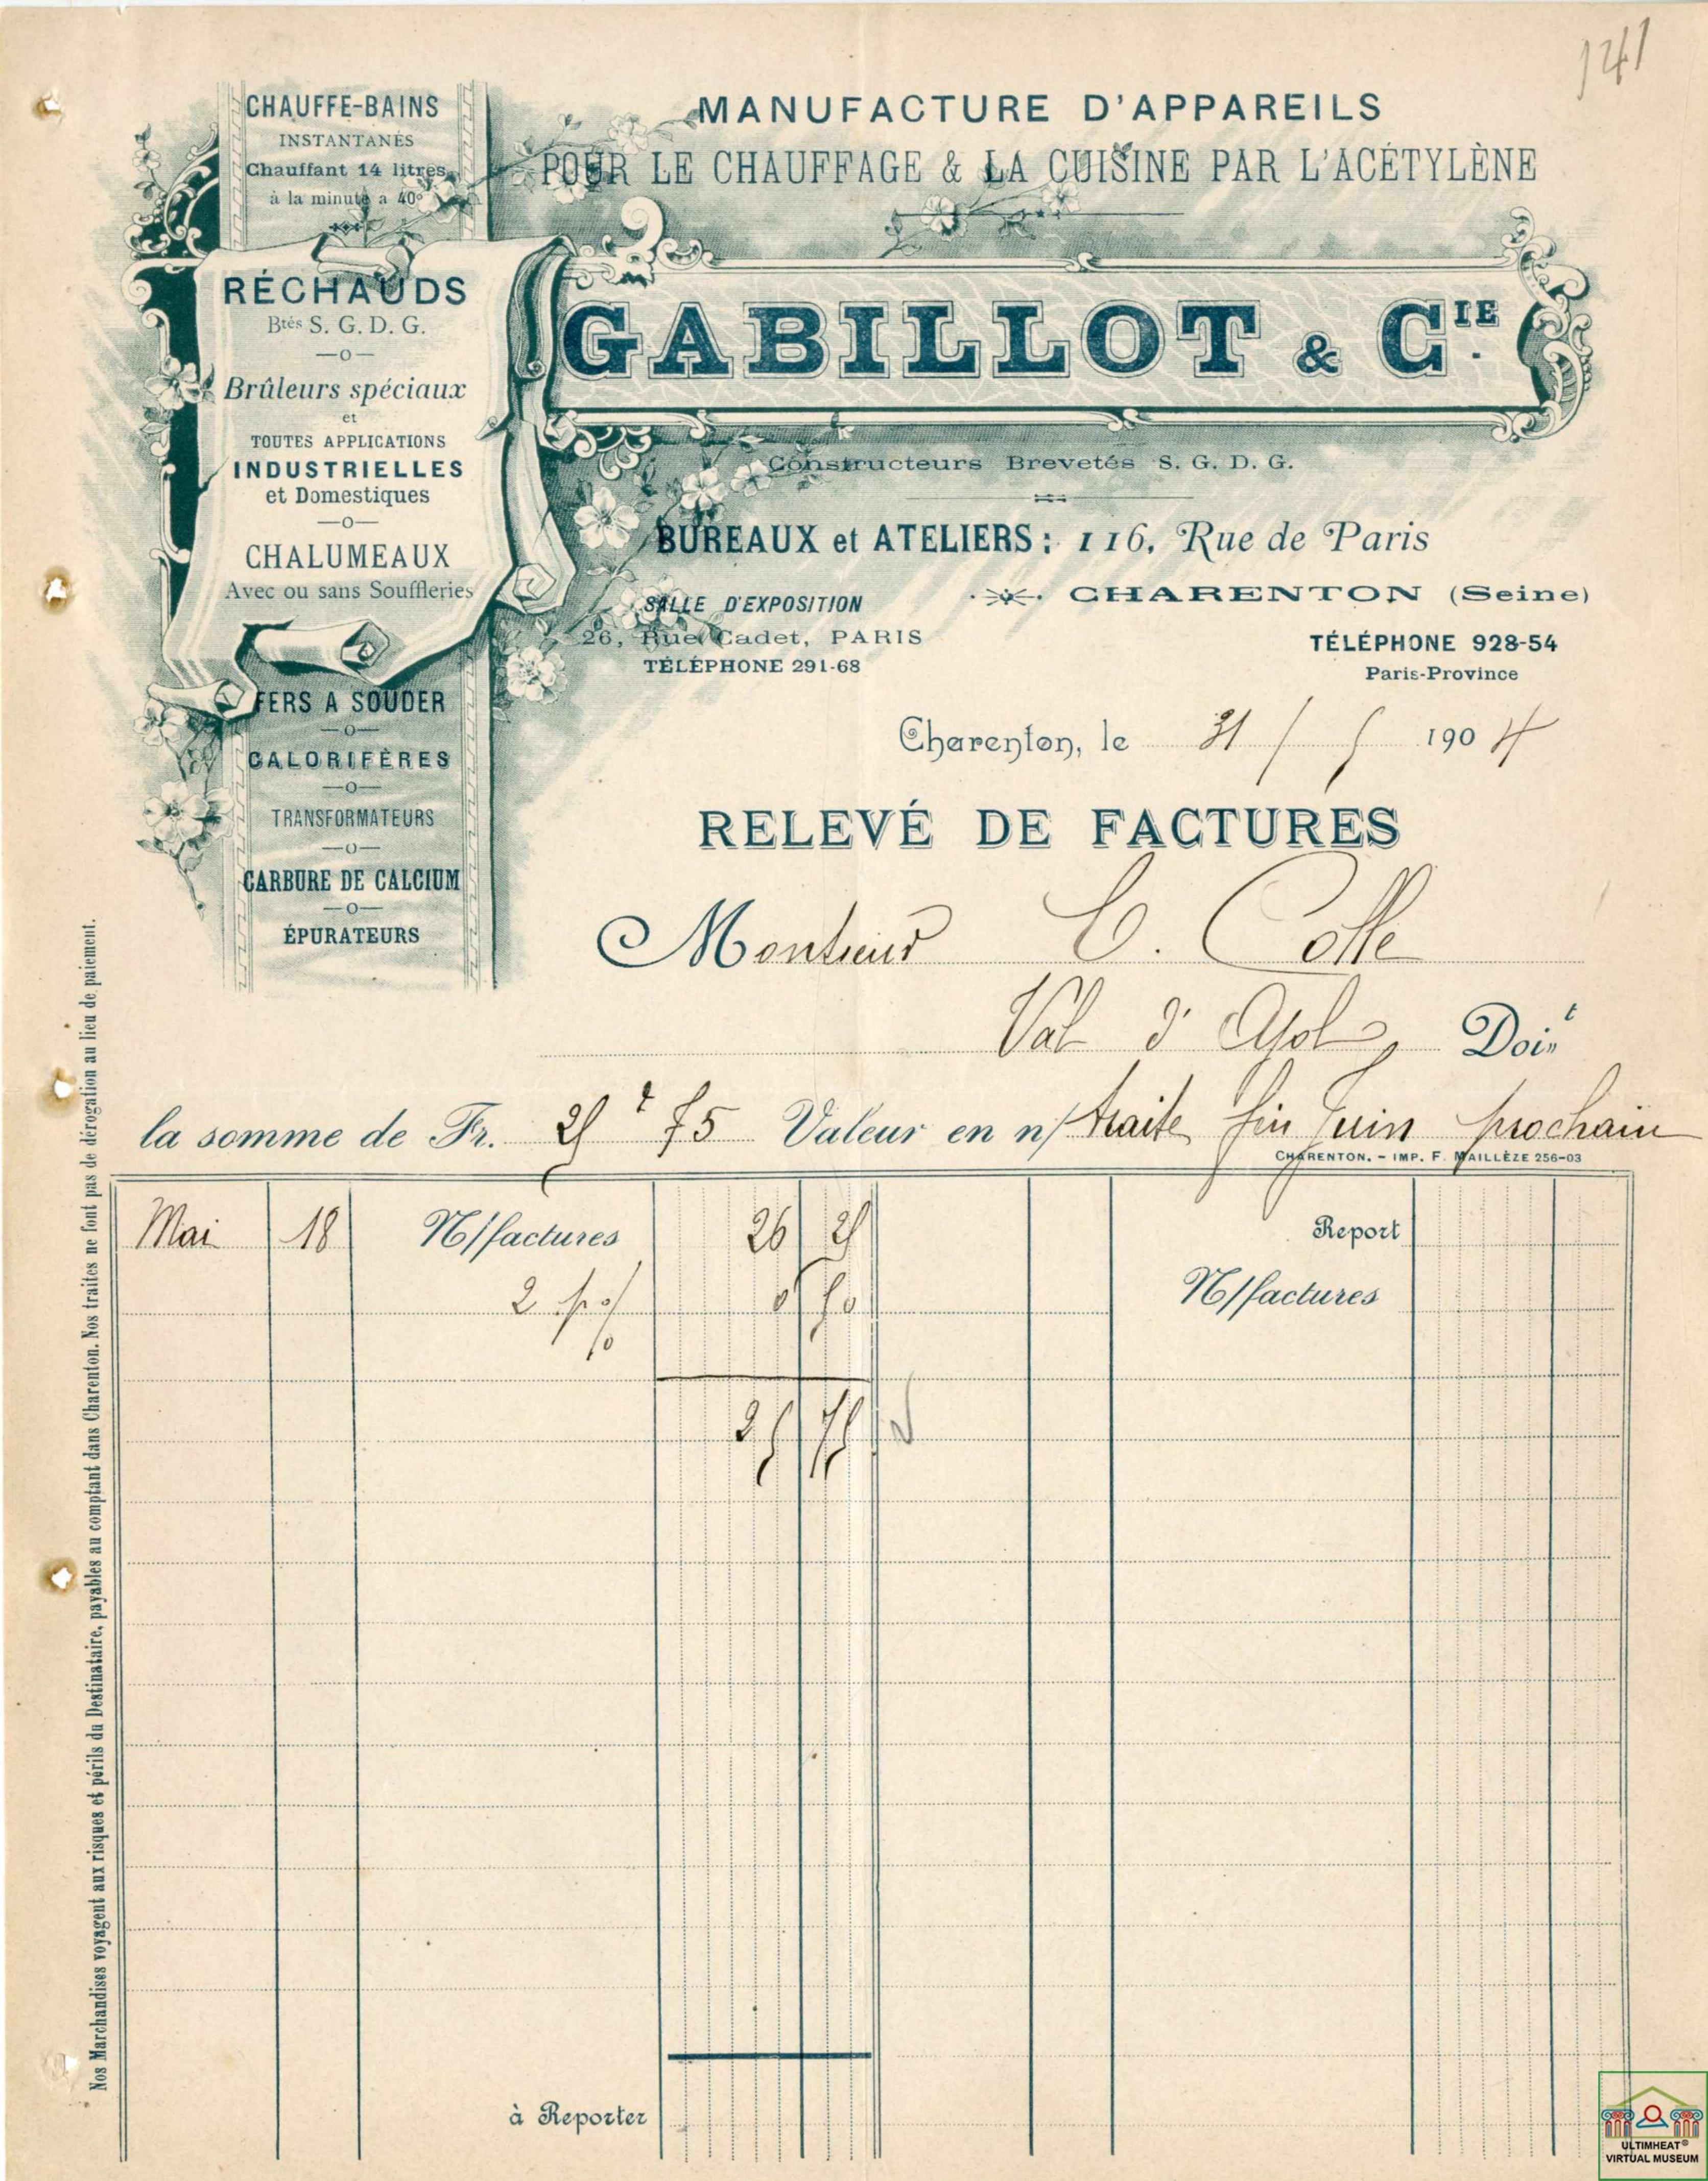 141
CHAUFFE-BAINS
INSTANTANÉS
Chauffant 14 litres
à la minute a 40°
RÉCHAUDS
Btés S. G. D. G.
Brûleurs spéciaux
et
TOUTES APPLICATIONS
INDUSTRIELLES
et Domestiques
CHALUMEAUX
Avec ou sans Souffleries
FERS A SOUDER
CALORIFÈRES
TRANSFORMATEURS
CARBURE DE CALCIUM
ÉPURATEURS
MANUFACTURE D'APPAREILS
POUR LE CHAUFFAGE & LA CUISINE PAR L'ACÉTYLÈNE
GABILLOT & CIE.
Constructeurs Brevetés S. G. D. G.
BUREAUX et ATELIERS : 116, Rue de Paris
CHARENTON (Seine)
SALLE D'EXPOSITION
26, Rue Cadet, PARIS
TÉLÉPHONE 291-68
TÉLÉPHONE 928-54
Paris-Province
Charenton, le 31/5 1904
RELEVÉ DE FACTURES
Monsieur C. Colle
Val d'Ajol, Doit
la somme de Fr. 25 f 75 Valeur en n/ traite fin Juin prochain
CHARENTON. - IMP. F. MAILLÈZE 256-03
Mai 18 N/factures 26 25 Report
2 p% 0 50 N/factures
25 75
à Reporter
Nos Marchandises voyagent aux risques et périls du Destinataire, payables au comptant dans Charenton. Nos traites ne font pas de dérogation au lieu de paiement.
ULTIMHEAT®
VIRTUAL MUSEUM